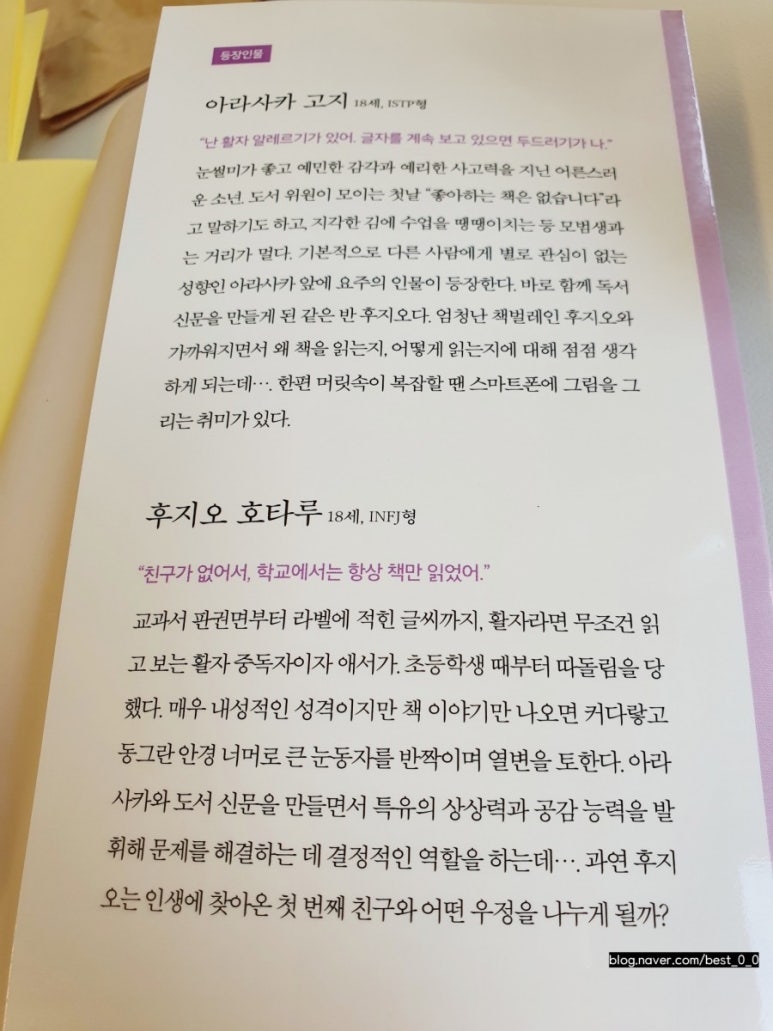 등장인물
아라사카 고지 18세, ISTP형
“난 활자 알레르기가 있어. 글자를 계속 보고 있으면 두드러기가 나.”
눈썰미가 좋고 예민한 감각과 예리한 사고력을 지닌 어른스러
운 소년. 도서 위원이 모이는 첫날 “좋아하는 책은 없습니다”라
고 말하기도 하고, 지각한 김에 수업을 땡땡이치는 등 모범생과
는 거리가 멀다. 기본적으로 다른 사람에게 별로 관심이 없는
성향인 아라사카 앞에 요주의 인물이 등장한다. 바로 함께 독서
신문을 만들게 된 같은 반 후지오다. 엄청난 책벌레인 후지오와
가까워지면서 왜 책을 읽는지, 어떻게 읽는지에 대해 점점 생각
하게 되는데…. 한편 머릿속이 복잡할 땐 스마트폰에 그림을 그
리는 취미가 있다.
후지오 호타루 18세, INFJ형
“친구가 없어서, 학교에서는 항상 책만 읽었어.”
교과서 판권면부터 라벨에 적힌 글씨까지, 활자라면 무조건 읽
고 보는 활자 중독자이자 애서가. 초등학생 때부터 따돌림을 당
했다. 매우 내성적인 성격이지만 책 이야기만 나오면 커다랗고
동그란 안경 너머로 큰 눈동자를 반짝이며 열변을 토한다. 아라
사카와 도서 신문을 만들면서 특유의 상상력과 공감 능력을 발
휘해 문제를 해결하는 데 결정적인 역할을 하는데…. 과연 후지
오는 인생에 찾아온 첫 번째 친구와 어떤 우정을 나누게 될까?
blog.naver.com/best_0_0